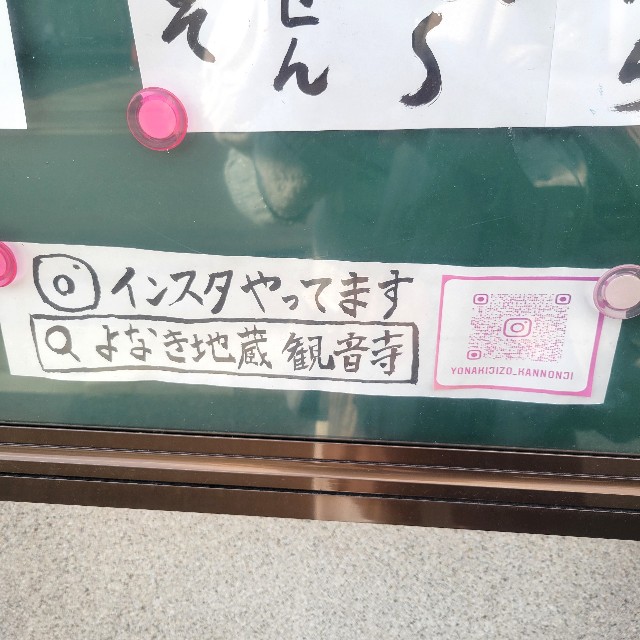 そ
せん
インスタやってます
よなき地蔵 観音寺
YONAKIJIZO_KANNONJI